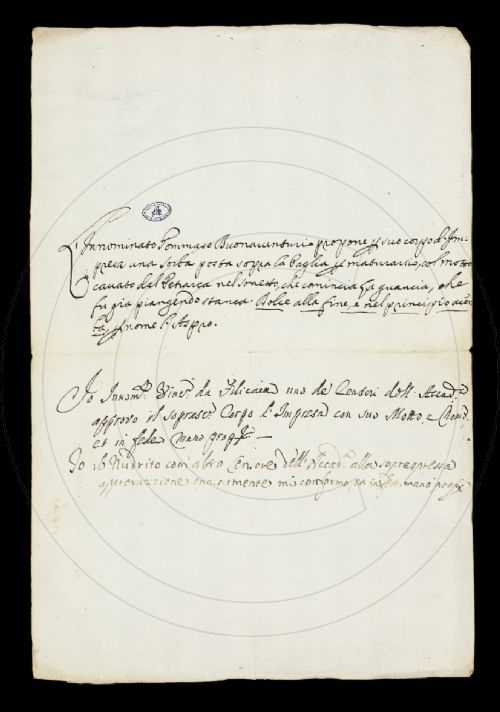 L'Innominato Tommaso Buonaventuri propone p suo corpo d'Im-
presa una Sorba posta sopra la Paglia p maturarsi, col motto
cavato dal Petrarca nel Sonetto, che comincia La guancia, che
fu già piangendo stanca Dolce alla fine, e nel principio acer-
ba, p nome l'Aspro.
Io Innom.º Vinc.º da Filicaia uno de Censori dell' Accad.ª
approvo il soprasc.º Corpo d'Impresa con suo Motto, e Nome,
et in fede mano prop.ª
Io il Nudrito com' altro Censore dell' Accad.ª alla sopraespressa
approvazione mi conformo, et in fede mano prop.ª